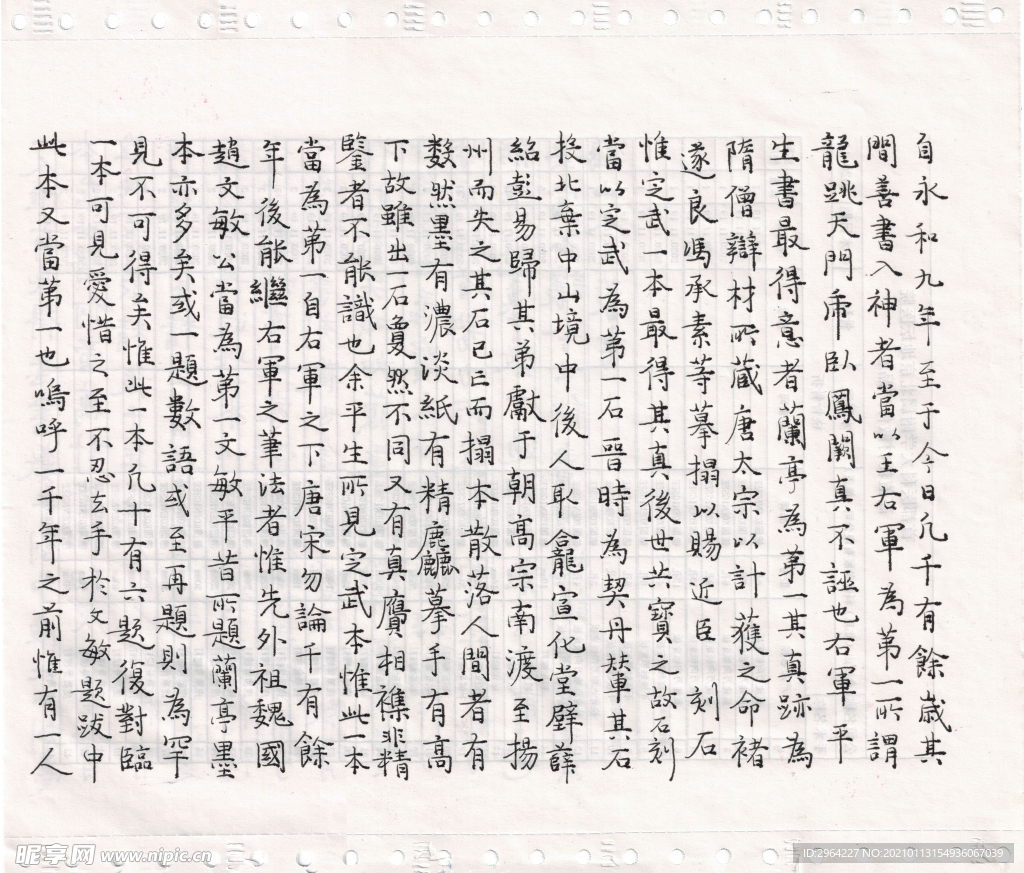 自永和九年至于今日凡千有餘歲其
間善書入神者當以王右軍為第一所謂
龍跳天門虎臥鳳闕真不誣也右軍平
生書最得意者蘭亭為第一其真跡為
隋僧辯材所蔵唐太宗以計獲之命褚
遂良馮承素等摹搨以賜近臣刻石
惟定武一本最得其真後世共寶之故石刻
當以定武為第一石晉時為契丹輦其石
投北棄中山境中後人取龕宣化堂壁薛
紹彭易歸其弟獻于朝高宗南渡至揚
州而失之其石已亡而搨本散落人間者有
数然墨有濃淡紙有精麤摹手有高
下故雖出一石敻然不同又有真贗相襍非精
鑒者不能識也余平生所見定武本惟此一本
當為第一自右軍之下唐宋勿論千有餘
年後能繼右軍之筆法者惟先外祖魏國
趙文敏公當為第一文敏平昔所題蘭亭墨
本亦多矣或一題數語或至再題則為罕
見不可得矣惟此一本凡十有六題復對臨
一本可見愛惜之至不忍去手於文敏題跋中
此本又當第一也嗚呼一千年之前惟有一人
昵享网 www.nipic.cn
ID:2964227 NO:20210113154936067039